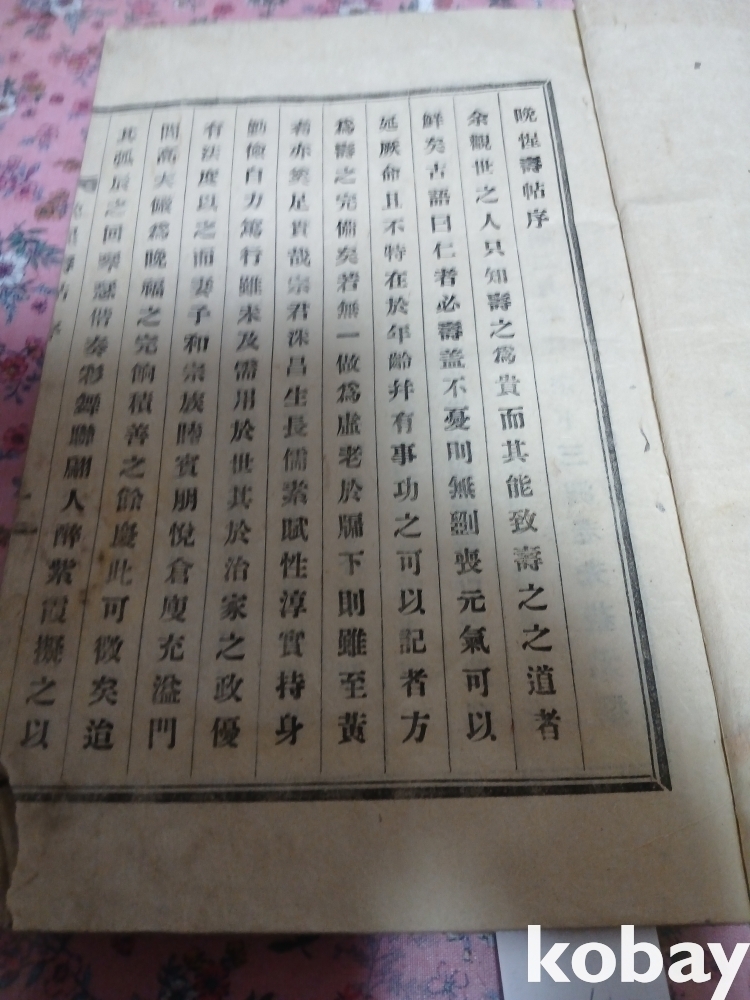 晚惺壽帖序
余觀世之人只知壽之爲貴而其能致壽之之道者
鮮矣古語曰仁者必壽盖不憂則無劉喪元氣可以
延厥命且不特在於年齡幷有事功之可以記者方
爲壽之完備矣若無一做爲虛老於牖下則雖至黃
耈亦奚足貴哉宗君洙昌生長儒素賦性淳實持身
勤儉自力篤行雖未及需用於世其於治家之政優
有法度以之而妻子和宗族睦賓朋悅倉廋充溢門
閭高大儘爲晚福之完餉積善之餘慶此可徵矣迨
其弧辰之回舉 俗奏彩舞聯翩人醉紫霞擬之以
kobay